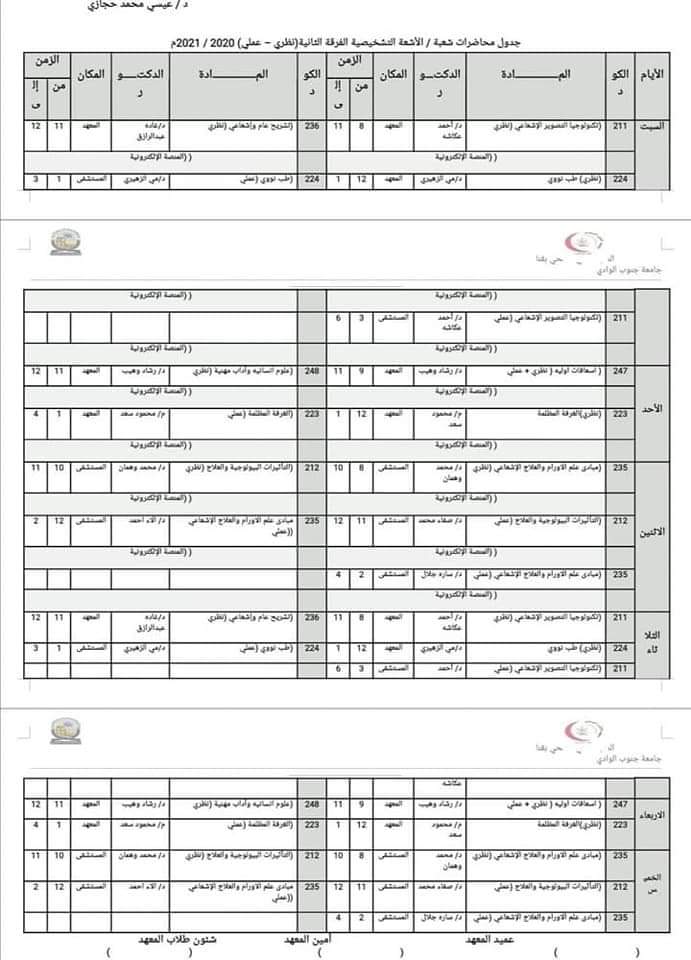 د / عيسي محمد حجازي
جدول محاضرات شعبة / الأشعة التشخيصية الفرقة الثانية(نظري – عملي) 2020 / 2021م
الأيام الكود المــــــادة الدكتـــور المكان الزمن الكود المــــــادة الدكتـــور المكان الزمن
من إلى من إلى
السبت 211 (تكنولوجيا التصوير الإشعاعي (نظري د/ أحمد عكاشه المعهد 8 11 236 (تشريح عام وإشعاعي (نظري د/غاده عبدالرازق المعهد 11 12
( (المنصة الإلكترونية ( (المنصة الإلكترونية
224 (نظري) طب نووي د/مي الزهيري المعهد 12 1 224 (طب نووي (عملي د/مي الزهيري المستشفى 1 3
حي بقنا
جامعة جنوب الوادي
( (المنصة الإلكترونية ( (المنصة الإلكترونية
211 (تكنولوجيا التصوير الإشعاعي (عملي د/ أحمد عكاشه المستشفى 3 6
( (المنصة الإلكترونية ( (المنصة الإلكترونية
الأحد 247 ( اسعافات اوليه ( نظري + عملي د/ رشاد وهيب المعهد 9 11 248 (علوم انسانيه وآداب مهنية (نظري د/ رشاد وهيب المعهد 11 12
( (المنصة الإلكترونية ( (المنصة الإلكترونية
223 (نظري)الغرفة المظلمة م/ محمود سعد المعهد 12 1 223 (الغرفة المظلمة (عملي م/ محمود سعد المعهد 1 4
( (المنصة الإلكترونية ( (المنصة الإلكترونية
الاثنين 235 (مبادى علم الاورام والعلاج الإشعاعي (نظري د/ محمد وهمان المستشفى 8 10 212 (التأثيرات البيولوجية والعلاج (نظري د/ محمد وهمان المستشفى 10 11
( (المنصة الإلكترونية ( (المنصة الإلكترونية
212 (التأثيرات البيولوجية والعلاج (عملي د/ صفاء محمد المستشفى 11 12 235 مبادى علم الاورام والعلاج الإشعاعي ((عملي د/ الاء احمد المستشفى 12 2
( (المنصة الإلكترونية ( (المنصة الإلكترونية
235 (مبادى علم الاورام والعلاج الإشعاعي (عملي د/ ساره جلال المستشفى 2 4
( (المنصة الإلكترونية ( (المنصة الإلكترونية
الثلاثاء 211 (تكنولوجيا التصوير الإشعاعي (نظري د/ أحمد عكاشه المعهد 8 11 236 (تشريح عام وإشعاعي (نظري د/غاده عبدالرازق المعهد 11 12
224 (نظري) طب نووي د/مي الزهيري المعهد 12 1 224 (طب نووي (عملي د/مي الزهيري المستشفى 1 3
211 (تكنولوجيا التصوير الإشعاعي (عملي د/ أحمد المستشفى 3 6
حي بقنا
جامعة جنوب الوادي
عكاشه
الاربعاء 247 ( اسعافات اوليه ( نظري + عملي د/ رشاد وهيب المعهد 9 11 248 (علوم انسانيه وآداب مهنية (نظري د/ رشاد وهيب المعهد 11 12
223 (نظري)الغرفة المظلمة م/ محمود سعد المعهد 12 1 223 (الغرفة المظلمة (عملي م/ محمود سعد المعهد 1 4
الخميس 235 (مبادى علم الاورام والعلاج الإشعاعي (نظري د/ محمد وهمان المستشفى 8 10 212 (التأثيرات البيولوجية والعلاج (نظري د/ محمد وهمان المستشفى 10 11
212 (التأثيرات البيولوجية والعلاج (عملي د/ صفاء محمد المستشفى 11 12 235 مبادى علم الاورام والعلاج الإشعاعي ((عملي د/ الاء احمد المستشفى 12 2
235 (مبادى علم الاورام والعلاج الإشعاعي (عملي د/ ساره جلال المستشفى 2 4
عميد المعهد أمين المعهد شئون طلاب المعهد
( ) ( ) ( )